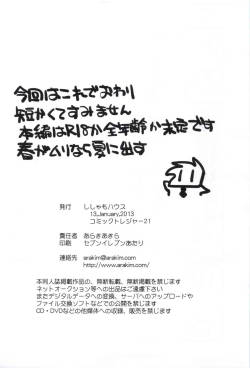 今回はこれでおわり
短かくてすみません
本編はR18か全年齢か未定です
春がムリなら夏に出す
発行　ししゃもハウス
13_January,2013
コミックトレジャー21
責任者　あらきあきら
印刷　セブンイレブンあたり
連絡先　arakim@arakim.com
http://www.arakim.com/
本同人誌掲載作品の、無断転載、無断掲載を禁じます
ネットオークション等への出品はご遠慮下さい
またデジタルデータへの変換、サーバへのアップロードや
ファイル交換ソフトなどでの公開を禁じます
CD・DVDなどの他媒体への収録、販売を禁じます